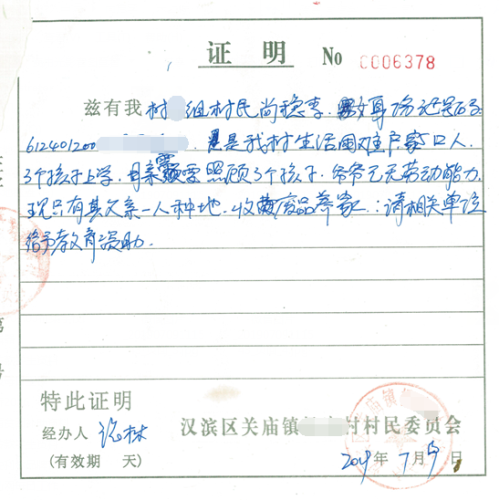 证 明 No 0006378
兹有我村 组村民尚稳李. 身份证号码
612401200 . 是我村生活困难户家口人
3个孩子上学. 母亲需要照顾3个孩子. 爷爷无劳动能力
现只有其父亲一人种地. 收废品养家. 请相关单位
给予教育资助.
第
号
特此证明
经办人
(有效期 天)
汉滨区关庙镇 村村民委员会
2019年 7月 日